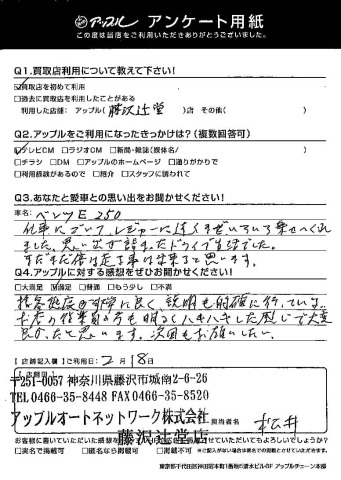 アップル アンケート用紙
この度は当店をご利用いただきありがとうございました。
Q1.買取店利用について教えて下さい!
☑買取店を初めて利用
□過去に買取店を利用したことがある
利用した店舗: アップル( 藤沢辻堂 )店 その他( )
Q2.アップルをご利用になったきっかけは?(複数回答可)
☑テレビCM □ラジオCM □新聞・雑誌(媒体名/ )
□チラシ □DM □アップルのホームページ □通りがかりで
□利用経験があるので □紹介 □スタッフに誘われて
Q3.あなたと愛車との思い出をお聞かせください!
車名: ベンツE250
仕事に レジャーに 乗せてくれ
ました。思い出が詰まったドライブ生活でした。
まだまだ 出来ると思います。
Q4.アップルに対する感想をぜひお聞かせください!
□大満足 ☑満足 □普通 □もう少し □不満
接客態度が非常に良く 説明も的確に行っている。
お店の従業員の方も明るくハキハキした感じで大変
良かったと思います。次回もお願いしたい。
【店舗記入欄】ご利用日: 2月18日
【店舗印】
〒251-0057 神奈川県藤沢市城南2-6-26
TEL0466-35-8448 FAX0466-35-8520
アップルオートネットワーク株式会社
藤沢辻堂店
担当者名 松井
お客様に書いていただいた感想をアップルのホームページなどでご紹介させていただいてもよろしいでしょうか?
□実名で掲載可 □匿名なら掲載可 □掲載不可 ※ご記入がない場合は匿名での掲載とさせて頂きます。
東京都千代田区神田岩本町1番地5清水ビル6F アップルチェーン本部